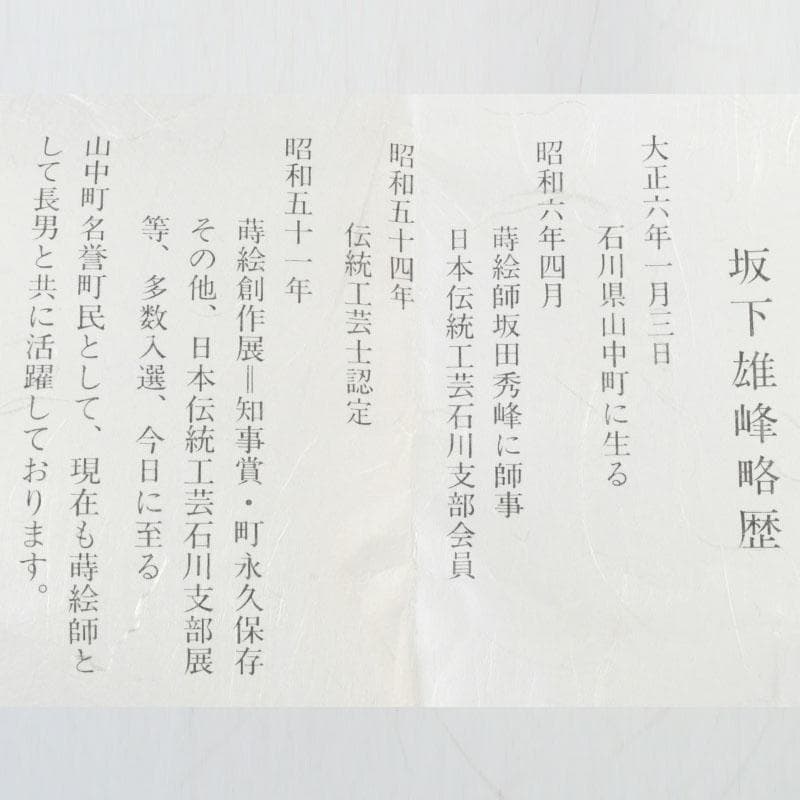 坂下雄峰略歴
大正六年一月三日
石川県山中町に生る
昭和六年四月
蒔絵師坂田秀峰に師事
日本伝統工芸石川支部会員
昭和五十四年
伝統工芸士認定
昭和五十一年
蒔絵創作展＝知事賞・町永久保存
その他、日本伝統工芸石川支部展
等、多数入選、今日に至る
山中町名誉町民として、現在も蒔絵師と
して長男と共に活躍しております。